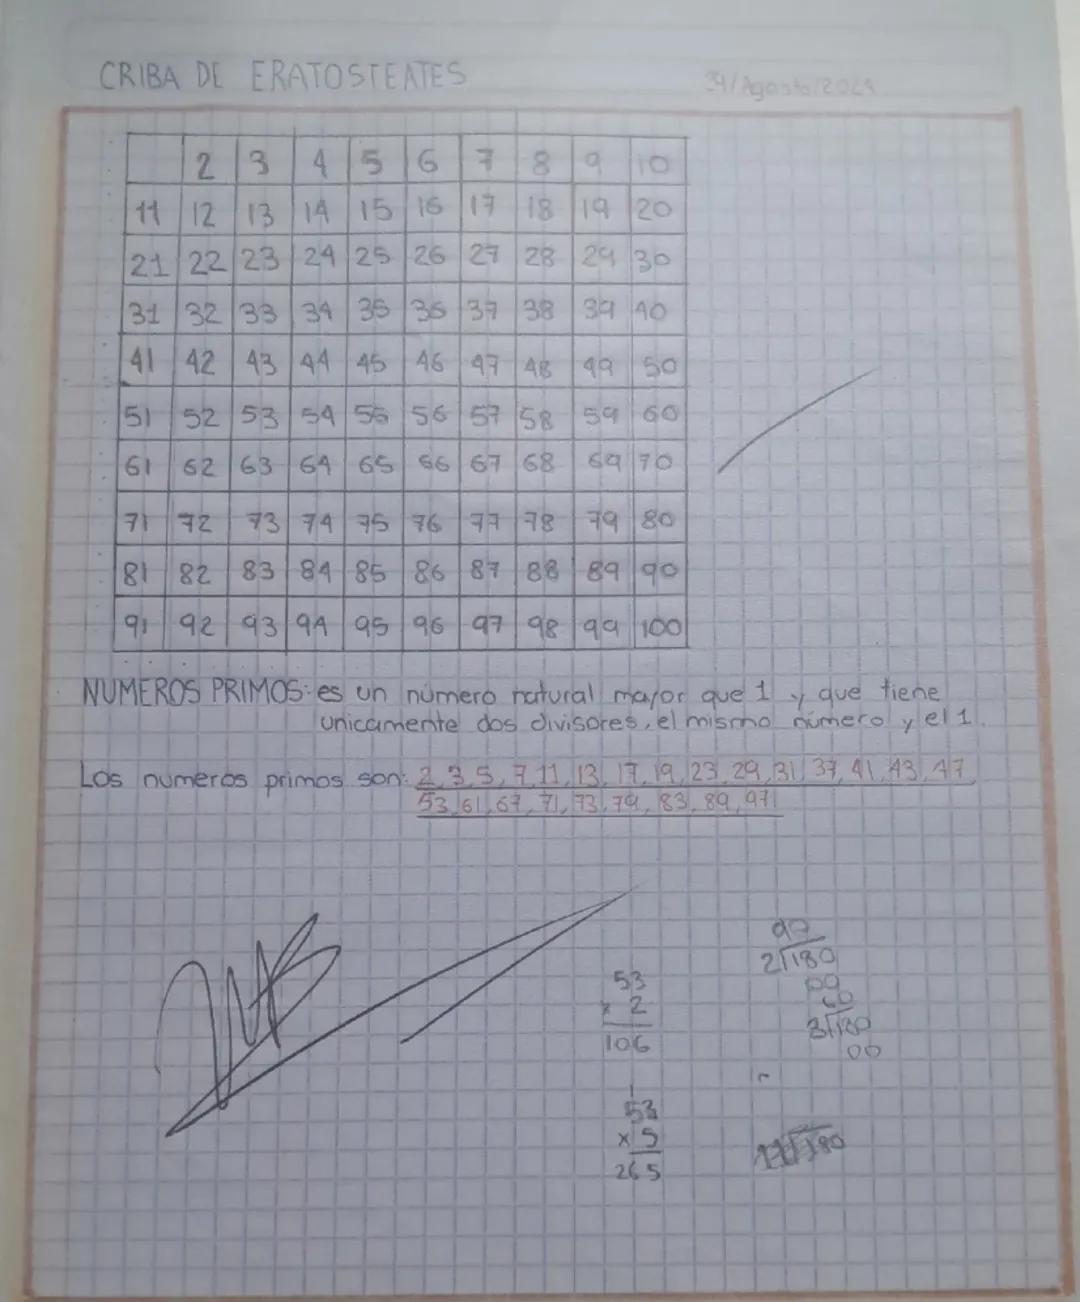 CRIBA DE ERATOSTEATES
/Agosto/202
2 3 4 5 6 7 8 9 10
11 12 13 14 15 16 17 18 19 20
21 22 23 24 25 26 27 28 29 30
31 32 33 34 35 36 37 38 39 40
41 42 43 44 45 46 47 48 49 50
51 52 53 54 55 56 57 58 59 60
61 62 63 64 65 66 67 68 69 70
71 72 73 74 75 76 77 78 79 80
81 82 83 84 85 86 87 88 89 90
91 92 93 94 95 96 97 98 99 100
NUMEROS PRIMOS: es un número natural mayor que 1 y que tiene
unicamente dos divisores, el mismo número y el 1.
Los numeros primos son: 2, 3, 5, 7, 11, 13, 17, 19, 23, 29, 31, 37, 41, 43, 47
53, 61, 67, 71, 73, 79, 83, 89, 97
53
x 2
106
53
x 5
265
2 180
00
60
3 180
00
180